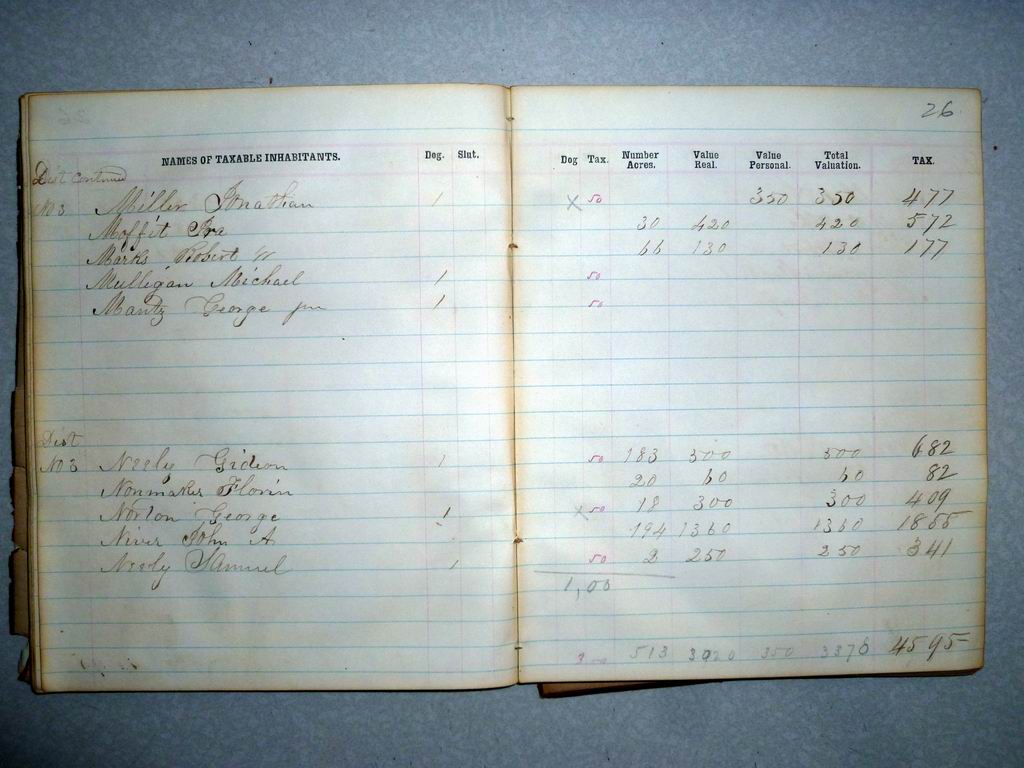 26
NAMES OF TAXABLE INHABITANTS. Dog. Slut. Dog Tax. Number Acres. Value Real. Value Personal. Total Valuation. TAX.
Dist continued
No 3 Miller Jonathan 1 X 50 350 350 477
Moffit Ira 30 420 420 572
Marks Robert W 66 130 130 177
Mulligan Michael 1 50
Mantz George jun 1 50
Dist
No 3 Neely Gideon 1 50 183 500 500 682
Nonmaker Florin 20 60 60 82
Norton George 1 X 50 18 300 300 409
Niver John A. 194 1360 1360 1855
Neely Samuel 1 50 2 250 250 341
1,00
3 00 513 3020 350 3370 4595